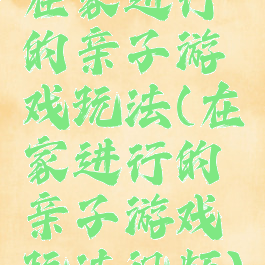 在家进行
的亲子游
戏玩法(在
家进行的
亲子游戏
玩法视频)